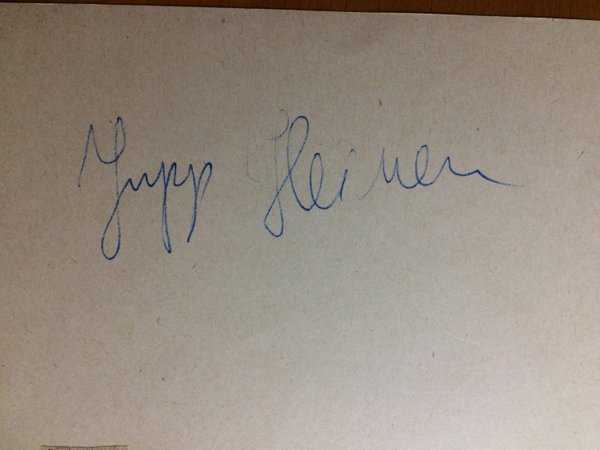 Jupp Heinen